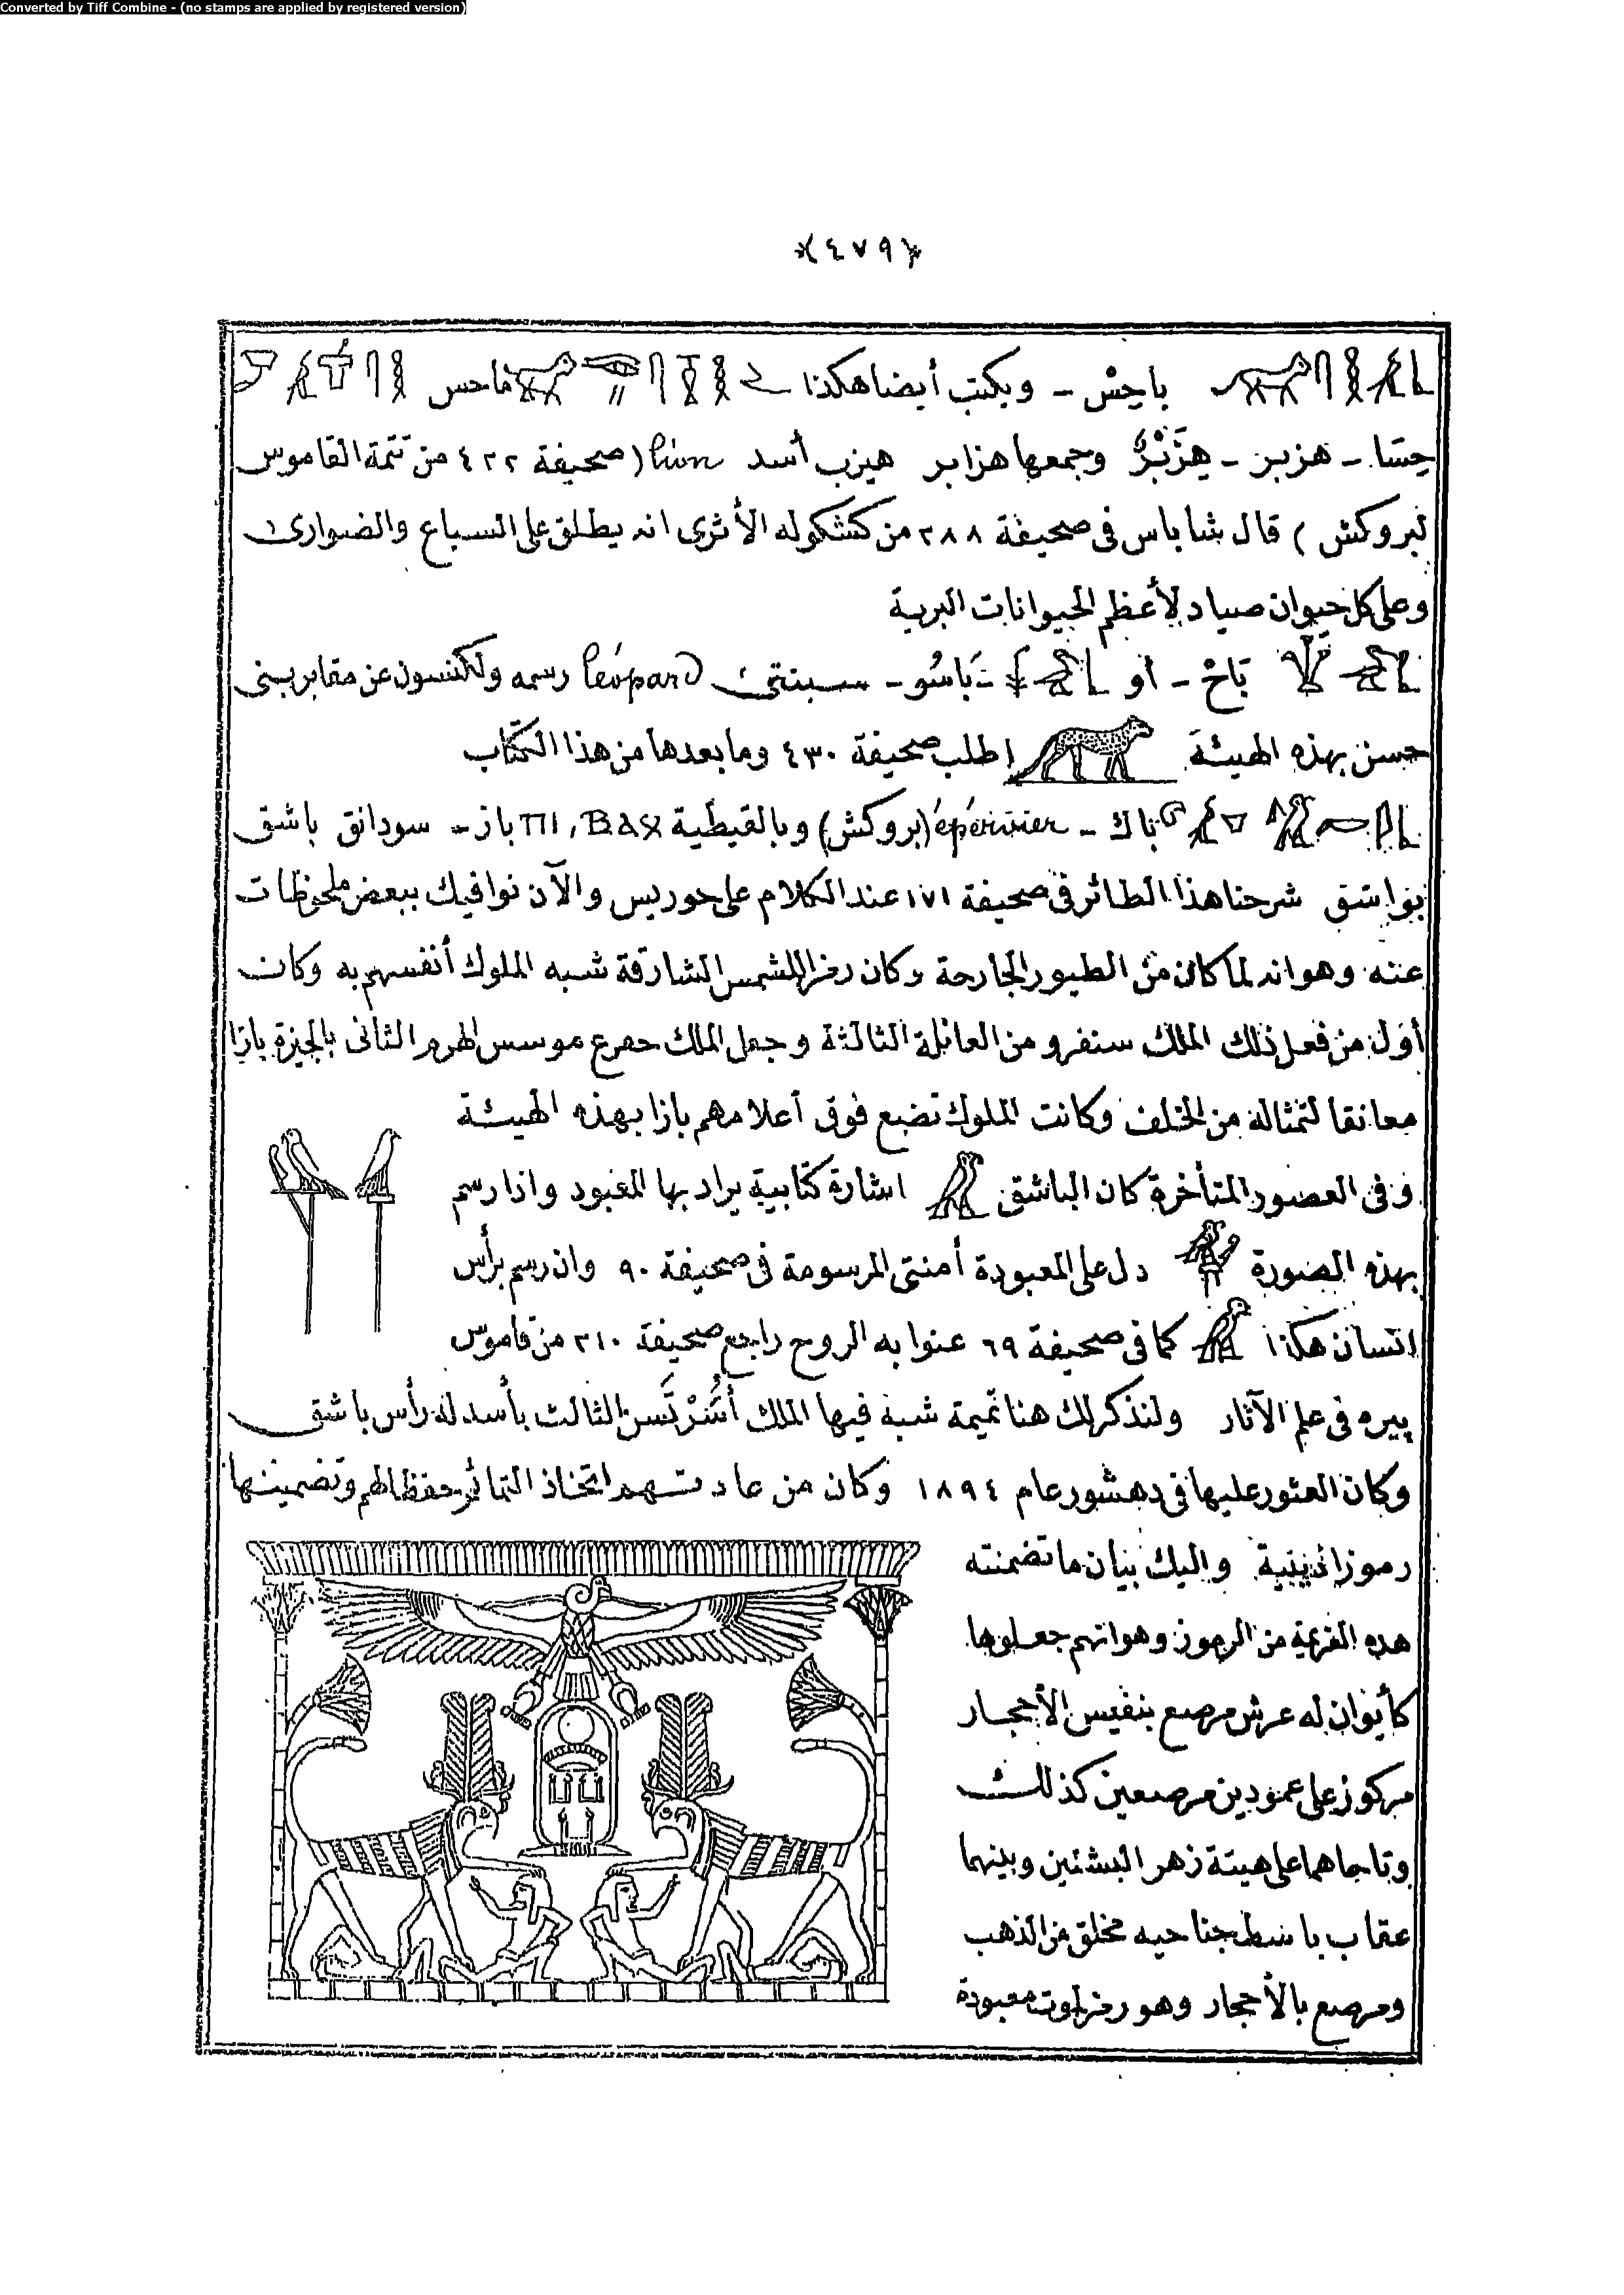 Converted by Tiff Combine - (no stamps are applied by registered version)
﴿٤٧٩﴾
باحِسْ - ويكتب أيضا هكذا ماحس
حِسَا - هزبر - هِزَبْرٌ وجمعها هزابر هيزب أسد lion (صحيفة ٤٢٢ من تتمة القاموس
لبروكش) قال شاباس فى صحيفة ٢٨٨ من كشكوله الأثرى انه يطلق على السباع والضوارى
وعلى كل حيوان صياد لأعظم الحيوانات البرية
بَاخْ - أو بَاسُو - سبنتى léopard رسمه ولكنسون عن مقابر بنى
حسن بهذه الهيئة اطلب صحيفة ٤٣٠ وما بعدها من هذا الكتاب
باك - épervier (بروكش) وبالقبطية ΠΙ, ΒΑϪ باز - سودانق باشق
بواشق شرحنا هذا الطائر فى صحيفة ١٧١ عند الكلام على حوريس والآن نوافيك ببعض ملحوظات
عنه وهو انه لما كان من الطيور الجارحة وكان رمزا للشمس الشارقة شبه الملوك أنفسهم به وكان
أول من فعل ذلك الملك سنفرو من العائلة الثالثة وجعل الملك خفرع موسس الهرم الثانى بالجيزة بازا
معانقا لتمثاله من الخلف وكانت الملوك تضع فوق أعلامهم بازا بهذه الهيئة
وفى العصور المتأخرة كان الباشق اشارة كتابية يراد بها المعبود واذا رسم
بهذه الصورة دل على المعبودة أمنتى المرسومة فى صحيفة ٩٠ وان رسم برأس
انسان هكذا كما فى صحيفة ٦٩ عنوا به الروح راجع صحيفة ٢١٠ من قاموس
پيره فى علم الآثار ولنذكر لك هنا تميمة شبه فيها الملك أُسَرْتَسن الثالث بأسد له رأس باشق
وكان العثور عليها فى دهشور عام ١٨٩٤ وكان من عادتهم اتخاذ التمائم حفظا لهم وتضمينها
رموزا دينية واليك بيان ما تضمنته
هذه التميمة من الرموز وهو انهم جعلوها
كأيوان له عرش مرصع بنفيس الأحجار
مركوز على عمودين مرصعين كذلك
وتاجاهما على هيئة زهر البشنين وبينهما
عقاب باسط جناحيه مخلق من الذهب
ومرصع بالأحجار وهو رمز لموت معبودة